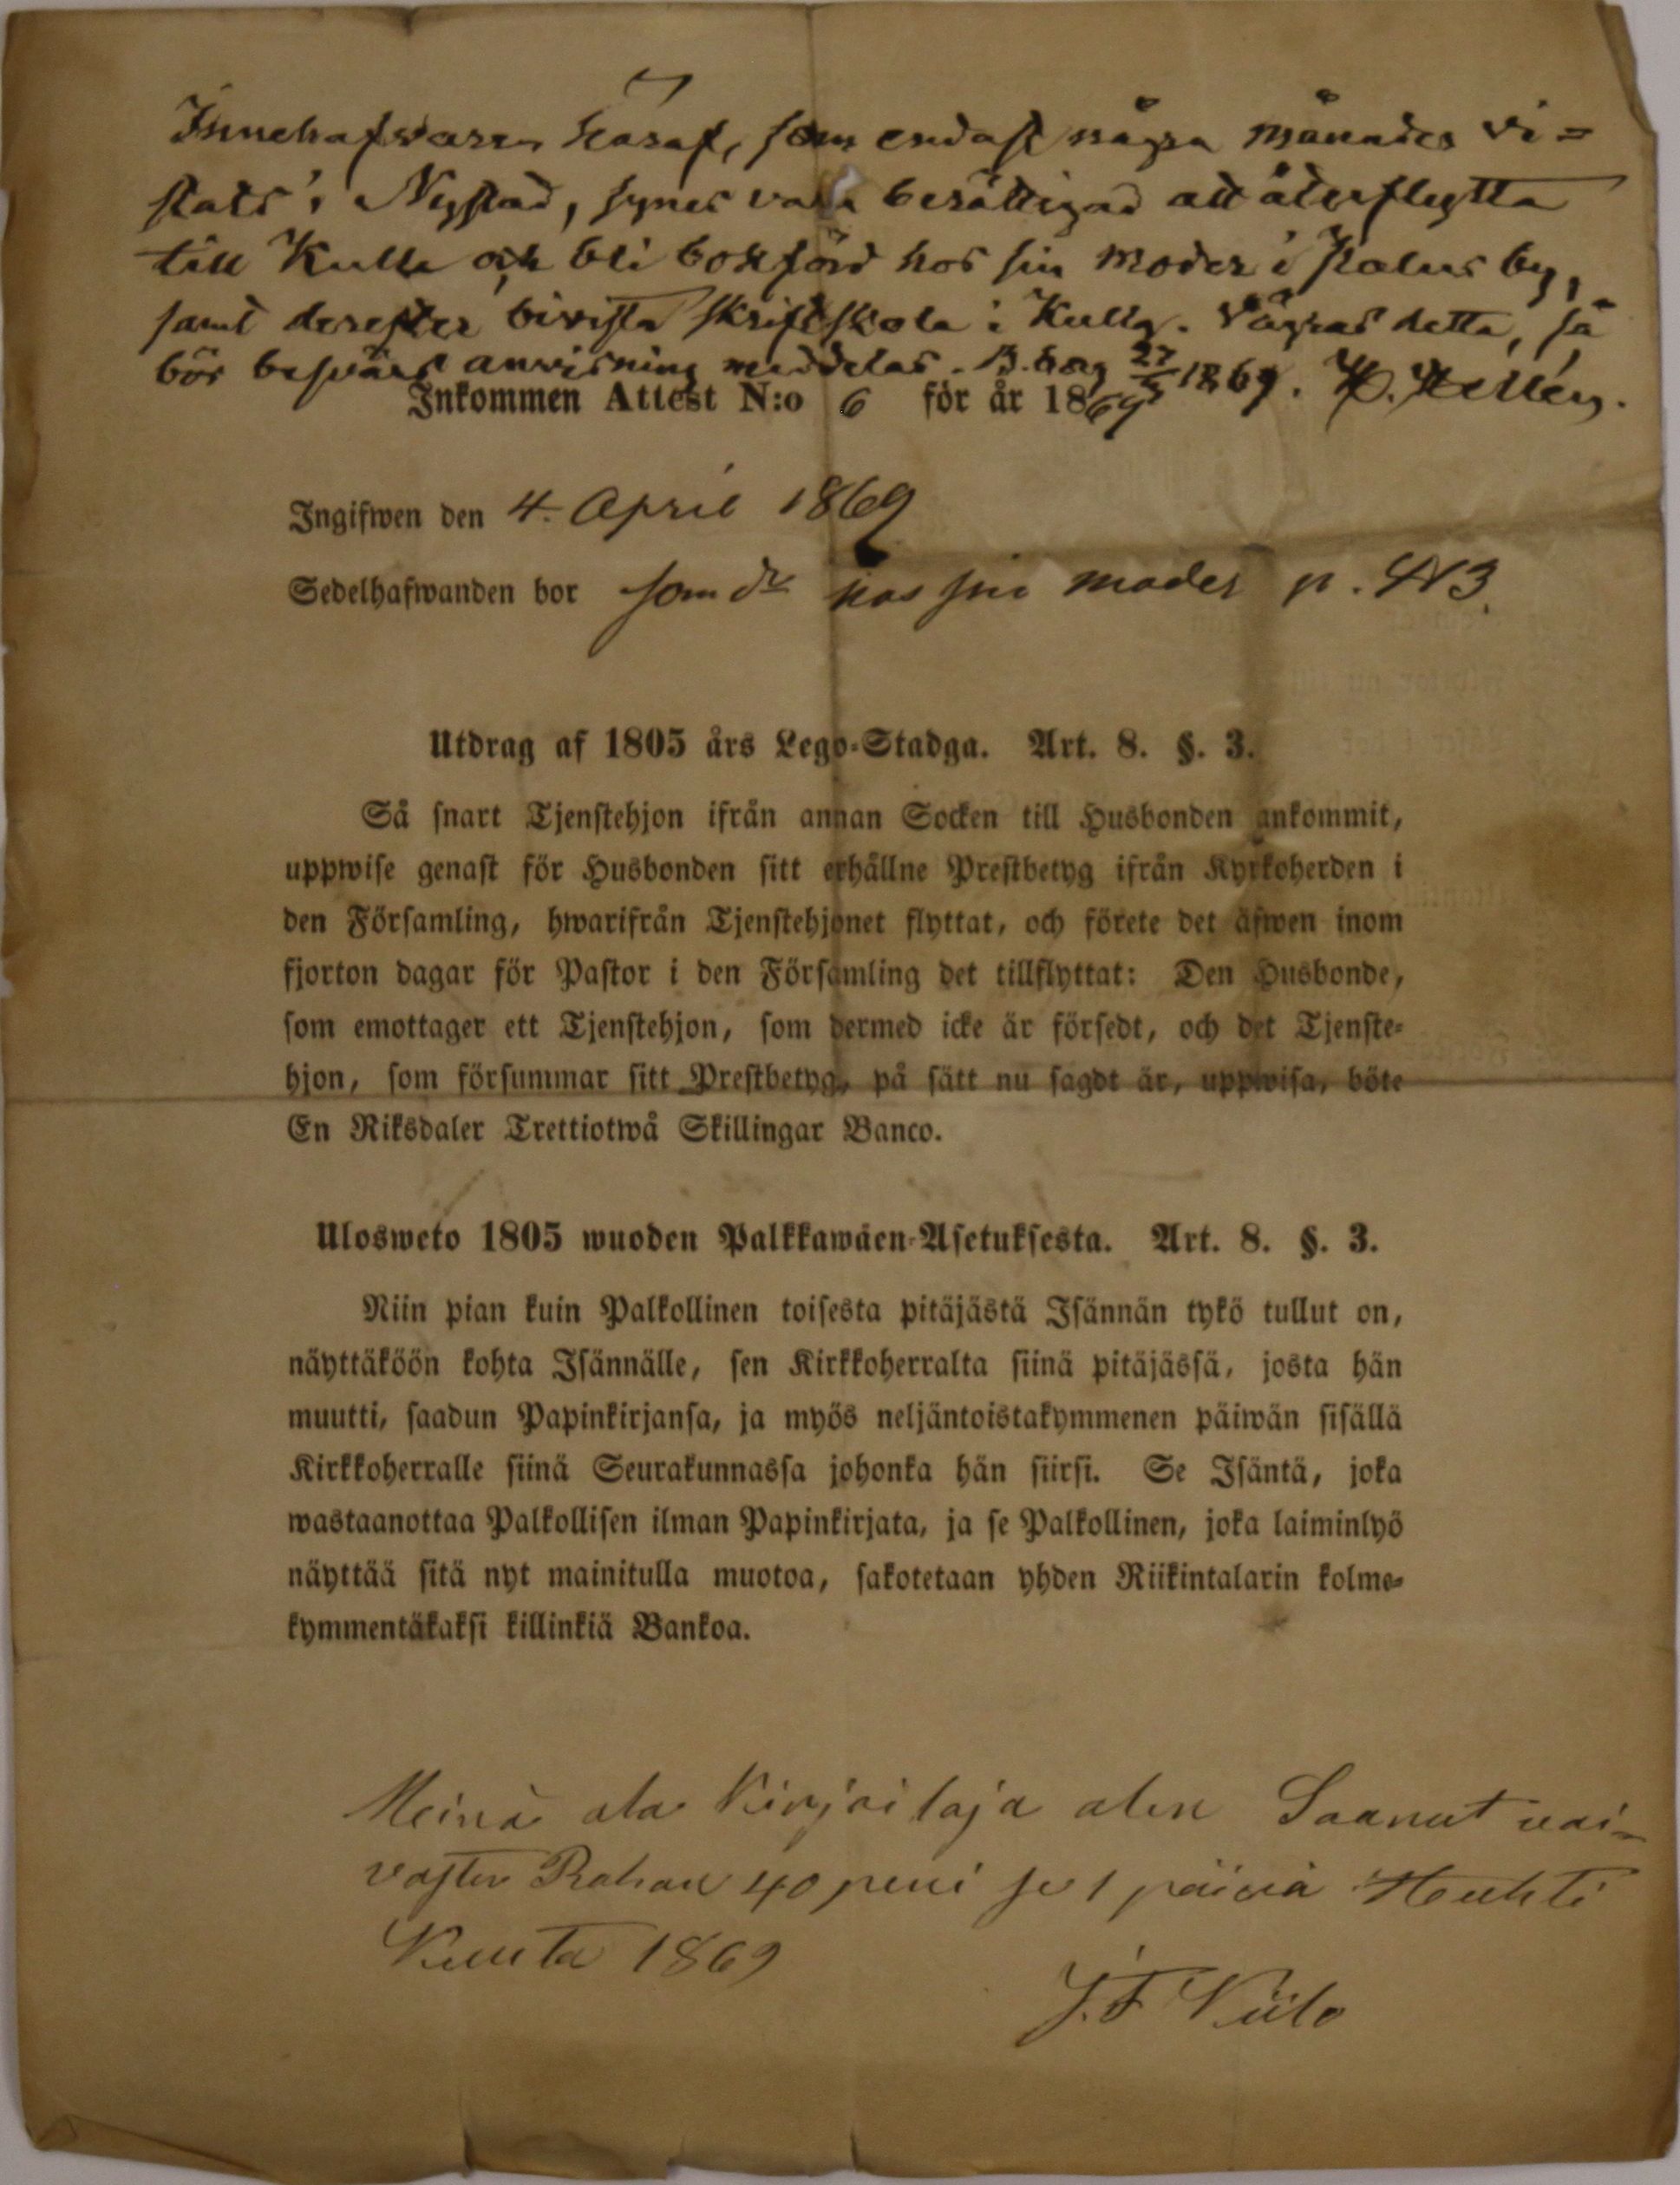 Innehafvaren häraf, som endast några månader vi=
stats i Nystad, synes vara berättigad att återflytta
till Kulla och bli bokförd hos sin moder i Kalus by,
samt derefter bivista skriftskola i Kulla. Vägras detta, så
bör besvärs anvisning meddelas. 27/3 1869. H. Hellén.
Inkommen Attest N:o 6 för år 1869
Ingifwen den 4. April 1869
Sedelhafwanden bor som dr hos sin moder p. 493.
Utdrag af 1805 års Lego-Stadga. Art. 8. §. 3.
Så snart Tjenstehjon ifrån annan Socken till Husbonden ankommit,
uppwise genast för Husbonden sitt erhållne Prestbetyg ifrån Kyrkoherden i
den Församling, hwarifrån Tjenstehjonet flyttat, och förete det äfwen inom
fjorton dagar för Pastor i den Församling det tillflyttat: Den Husbonde,
som emottager ett Tjenstehjon, som dermed icke är försedt, och det Tjenste-
hjon, som försummar sitt Prestbetyg, på sätt nu sagdt är, uppwisa, böte
En Riksdaler Trettiotwå Skillingar Banco.
Ulosweto 1805 wuoden Palkkawäen-Asetuksesta. Art. 8. §. 3.
Niin pian kuin Palkollinen toisesta pitäjästä Isännän tykö tullut on,
näyttäköön kohta Isännälle, sen Kirkkoherralta siinä pitäjässä, josta hän
muutti, saadun Papinkirjansa, ja myös neljäntoistakymmenen päiwän sisällä
Kirkkoherralle siinä Seurakunnassa johonka hän siirsi. Se Isäntä, joka
wastaanottaa Palkollisen ilman Papinkirjata, ja se Palkollinen, joka laiminlyö
näyttää sitä nyt mainitulla muotoa, sakotetaan yhden Riikintalarin kolme-
kymmentäkaksi killinkiä Bankoa.
Meinä ala Kirjoitaja olen Saanut vai-
vasten Rahan 40 peni se 1 päivä Huhti
Kuuta 1869
J. F Kiilo